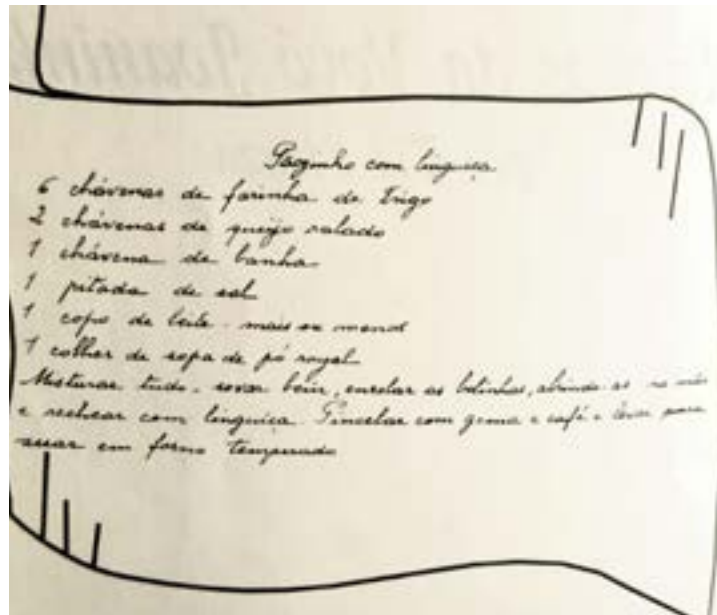 Pãezinho com linguiça
6 chávenas de farinha de trigo
2 chávenas de queijo ralado
1 chávena de banha
1 pitada de sal
1 copo de leite - mais ou menos
1 colher de sopa de pó royal
Misturar tudo, sovar bem, enrolar as bolinhas, abrindo-as na mão
e rechear com linguiça. Pincelar com gema e café e levar para
assar em forno temperado